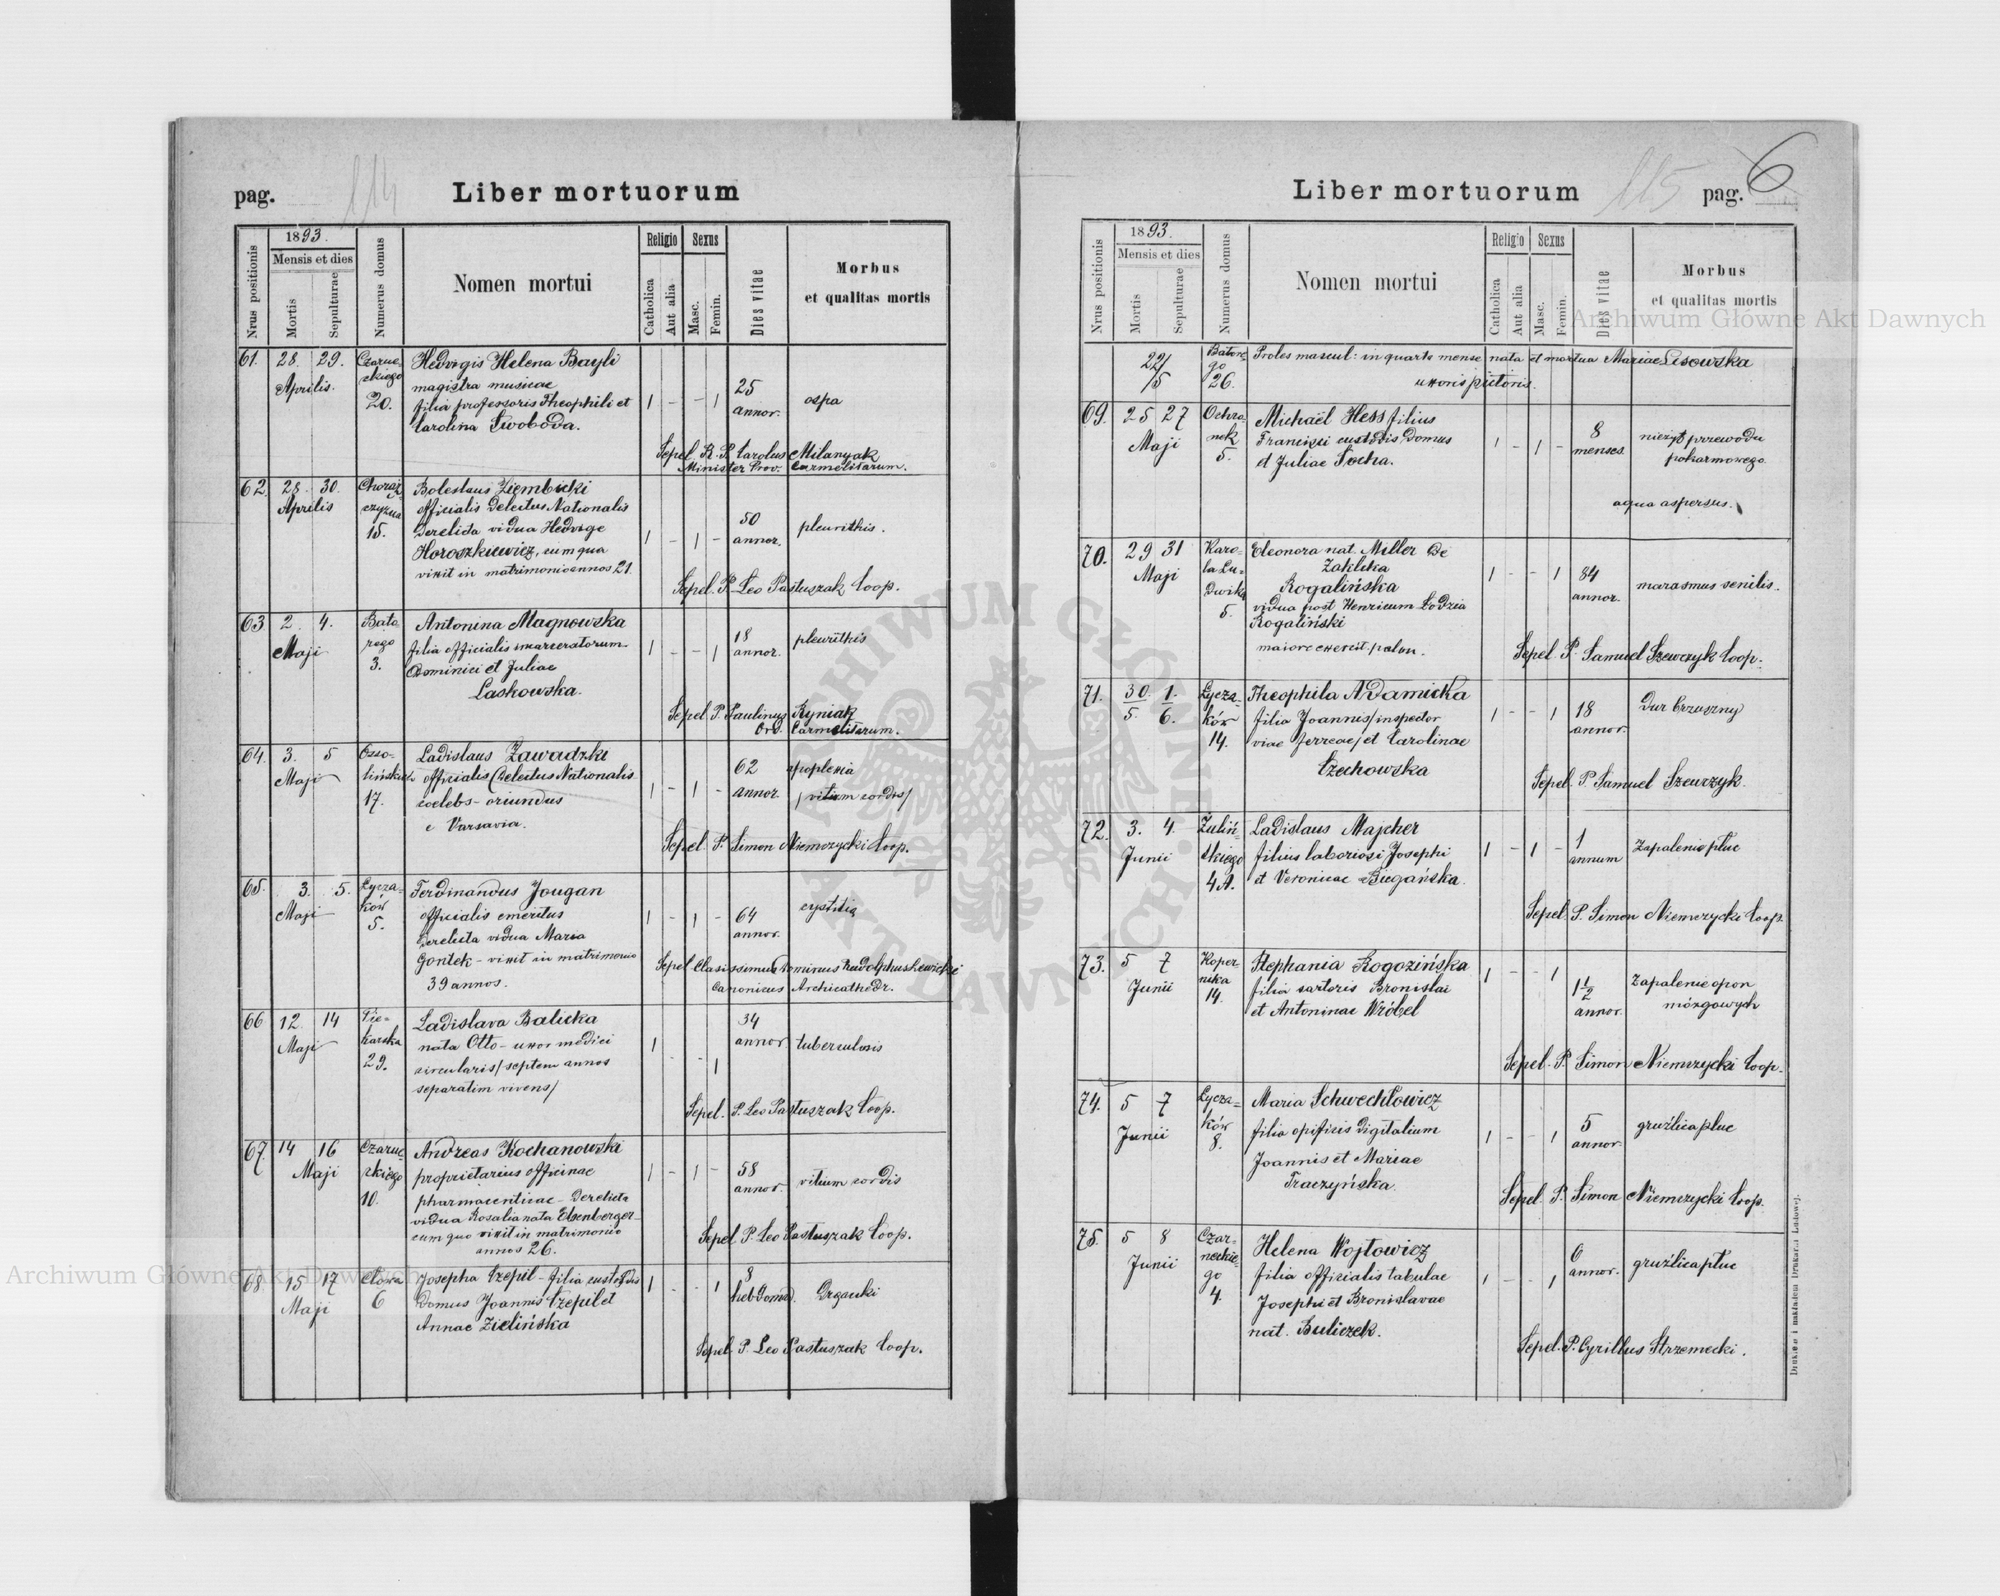 pag. 114 Liber mortuorum
1893.
Nrus positionis Mensis et dies Mortis Sepulturae Numerus domus Nomen mortui Religio Catholica Aut alia Sexus Masc. Femin. Dies vitae Morbus et qualitas mortis
61. 28. 29. Aprilis.
Czarneckiego
20.
Hedvigis Helena Bayli
magistra musicae
filia professoris Theophili et
Carolina Swoboda.
1 - - 1
25
annor.
ospa
Sepel. R. P. Carolus Milanyak
Minister Prov. Carmelitarum.
62. 28. 30.
Aprilis
Chorąż-
czyzna
15.
Boleslaus Ziembicki
officialis Delectus Nationalis
derelicta vidua Hedvige
Horoszkiewicz, cum qua
vixit in matrimonio annos 21.
1 - 1 -
50
annor.
pleurithis.
Sepel. P. Leo Pastuszak Coop.
63 2. 4.
Maji
Bato
rego
3.
Antonina Magnowska
filia officialis incarceratorum
Dominici et Juliae
Laskowska.
1 - - 1
18
annor.
pleurithis
Sepel. P. Paulinus Ryniak
Ord. Carmelitarum.
64. 3. 5
Maji
Osso-
lińskich
17.
Ladislaus Zawadzki
officialis Delectus Nationalis
coelebs - oriundus
e Varsavia.
1 - 1 -
62
annor.
apoplexia
/vitium cordis/
Sepel. P. Simon Niemczycki Coop.
65. 3. 5.
Maji
Łycza-
ków
5.
Ferdinandus Jougan
officialis emeritus
derelicta vidua Maria
Gontek - vixit in matrimonio
39 annos.
1 - 1 -
64
annor.
cystitis
Sepel. Clarissimus Dominus Rudolphus Lewicki
Canonicus Archicathedr.
66 12. 14
Maji
Pie-
karska
29.
Ladislava Balicka
nata Otto - uxor medici
circularis /septem annos
separatim vivens/
1 - - 1
34
annor.
tuberculosis
Sepel. P. Leo Pastuszak Coop.
67. 14 16
Maji
Czarnec-
kiego
10.
Andreas Kochanowski
proprietarius officinae
pharmaceuticae - derelicta
vidua Rosalia nata Elsenberger -
cum quo vixit in matrimonio
annos 26.
1 - 1 -
58
annor.
vitium cordis
Sepel. P. Leo Pastuszak Coop.
68. 15 17
Maji
Cłowa
6
Josepha Czepil - filia custodis
domus Joannis Czepil et
Annae Zielińska
1 - - 1
8
hebdomad.
Drgawki
Sepel. P. Leo Pastuszak Coop.
Liber mortuorum 115 pag. 6
1893.
Nrus positionis Mensis et dies Mortis Sepulturae Numerus domus Nomen mortui Religio Catholica Aut alia Sexus Masc. Femin. Dies vitae Morbus et qualitas mortis
22/5
Batore-
go
26.
Proles mascul: in quarto mense nata et mortua Mariae Lisowska
uxoris pictoris.
69. 25 27
Maji
Ochro-
nek
5.
Michaël Hess filius
Francisci custodis domus
et Juliae Socha.
1 - 1 -
8
menses.
nieżyt przewodu
pokarmowego.
aqua aspersus.
70. 29 31
Maji
Karo-
la Lu-
dwika
5.
Eleonora nat. Miller de
Zaklika
Rogalińska
vidua post Henricum Lodzia
Rogaliński
1 - - 1
84
annor.
marasmus senilis.
Sepel. P. Samuel Szewczyk Coop.
71. 30. 1.
5. 6.
Łycza-
ków
14.
Theophila Adamicka
filia Joannis /inspector
viae ferreae/ et Carolinae
Czechowska
1 - - 1
18
annor.
Dur brzuszny
Sepel. P. Samuel Szewczyk.
72. 3. 4.
Junii
Zuliń-
skiego
4A.
Ladislaus Majcher
filius laboriosi Josephi
et Veronicae Biegańska.
1 - 1 -
1
annum
Zapalenie płuc
Sepel. P. Simon Niemczycki Coop.
73. 5 7
Junii
Koper-
nika
14.
Stephania Rogozińska
filia sartoris Bronislai
et Antoninae Wróbel
1 - - 1
1 1/2
annor.
Zapalenie opon
mózgowych
Sepel. P. Simon Niemczycki Coop.
74. 5 7
Junii
Łycza-
ków
8.
Maria Schwechłowicz
filia opificis digitalium
Joannis et Mariae
Traczyńska.
1 - - 1
5
annor.
gruźlica płuc
Sepel. P. Simon Niemczycki Coop.
75. 5 8
Junii
Czar-
neckie-
go
4.
Helena Wojtowicz
filia officialis tabulae
Josephi et Bronislavae
nat. Buliczek.
1 - - 1
6
annor.
gruźlica płuc
Sepel. P. Cyrillus Strzemecki.
Drukiem i nakładem Drukarni Ludowej.
Archiwum Główne Akt Dawnych
Archiwum Główne Akt Dawnych
ARCHIWUM GŁÓWNE AKT DAWNYCH